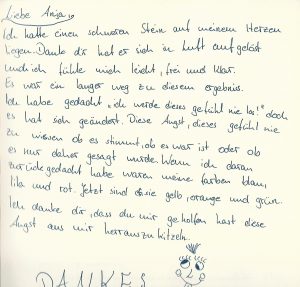 Liebe Anja,
Ich hatte einen schweren Stein auf meinem Herzen
liegen. Danke dir hat er sich in Luft aufgelöst
und ich fühle mich leicht, frei und klar.
Es war ein langer weg zu diesem ergebnis.
Ich habe gedacht „ich werde dieses gefühl nie los!" doch
es hat sich geändert. Diese Angst, dieses gefühl nie
zu wissen ob es stimmt, ob es war ist oder ob
es nur daher gesagt wurde. Wenn ich daran
zurückgedacht habe waren meine farben blau,
lila und rot. Jetzt sind sie gelb, orange und grün.
Ich danke dir, dass du mir geholfen hast diese
Angst aus mir herrauszukitzeln.
DANKE